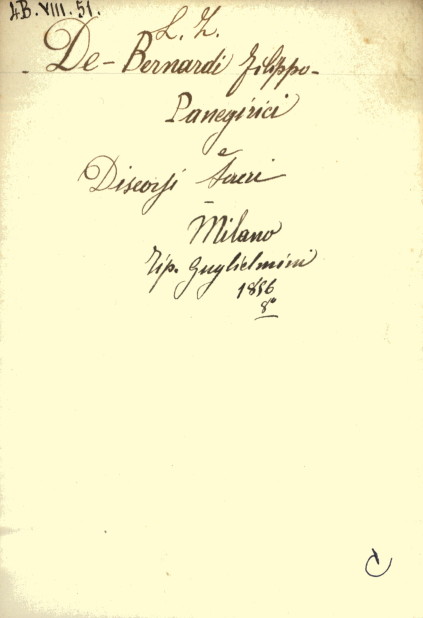 4B.VIII.51.
L. Z.
De-Bernardi Filippo-
Panegirici
e
Discorsi Sacri
-
Milano
Tip. Guglielmini
1856
8°